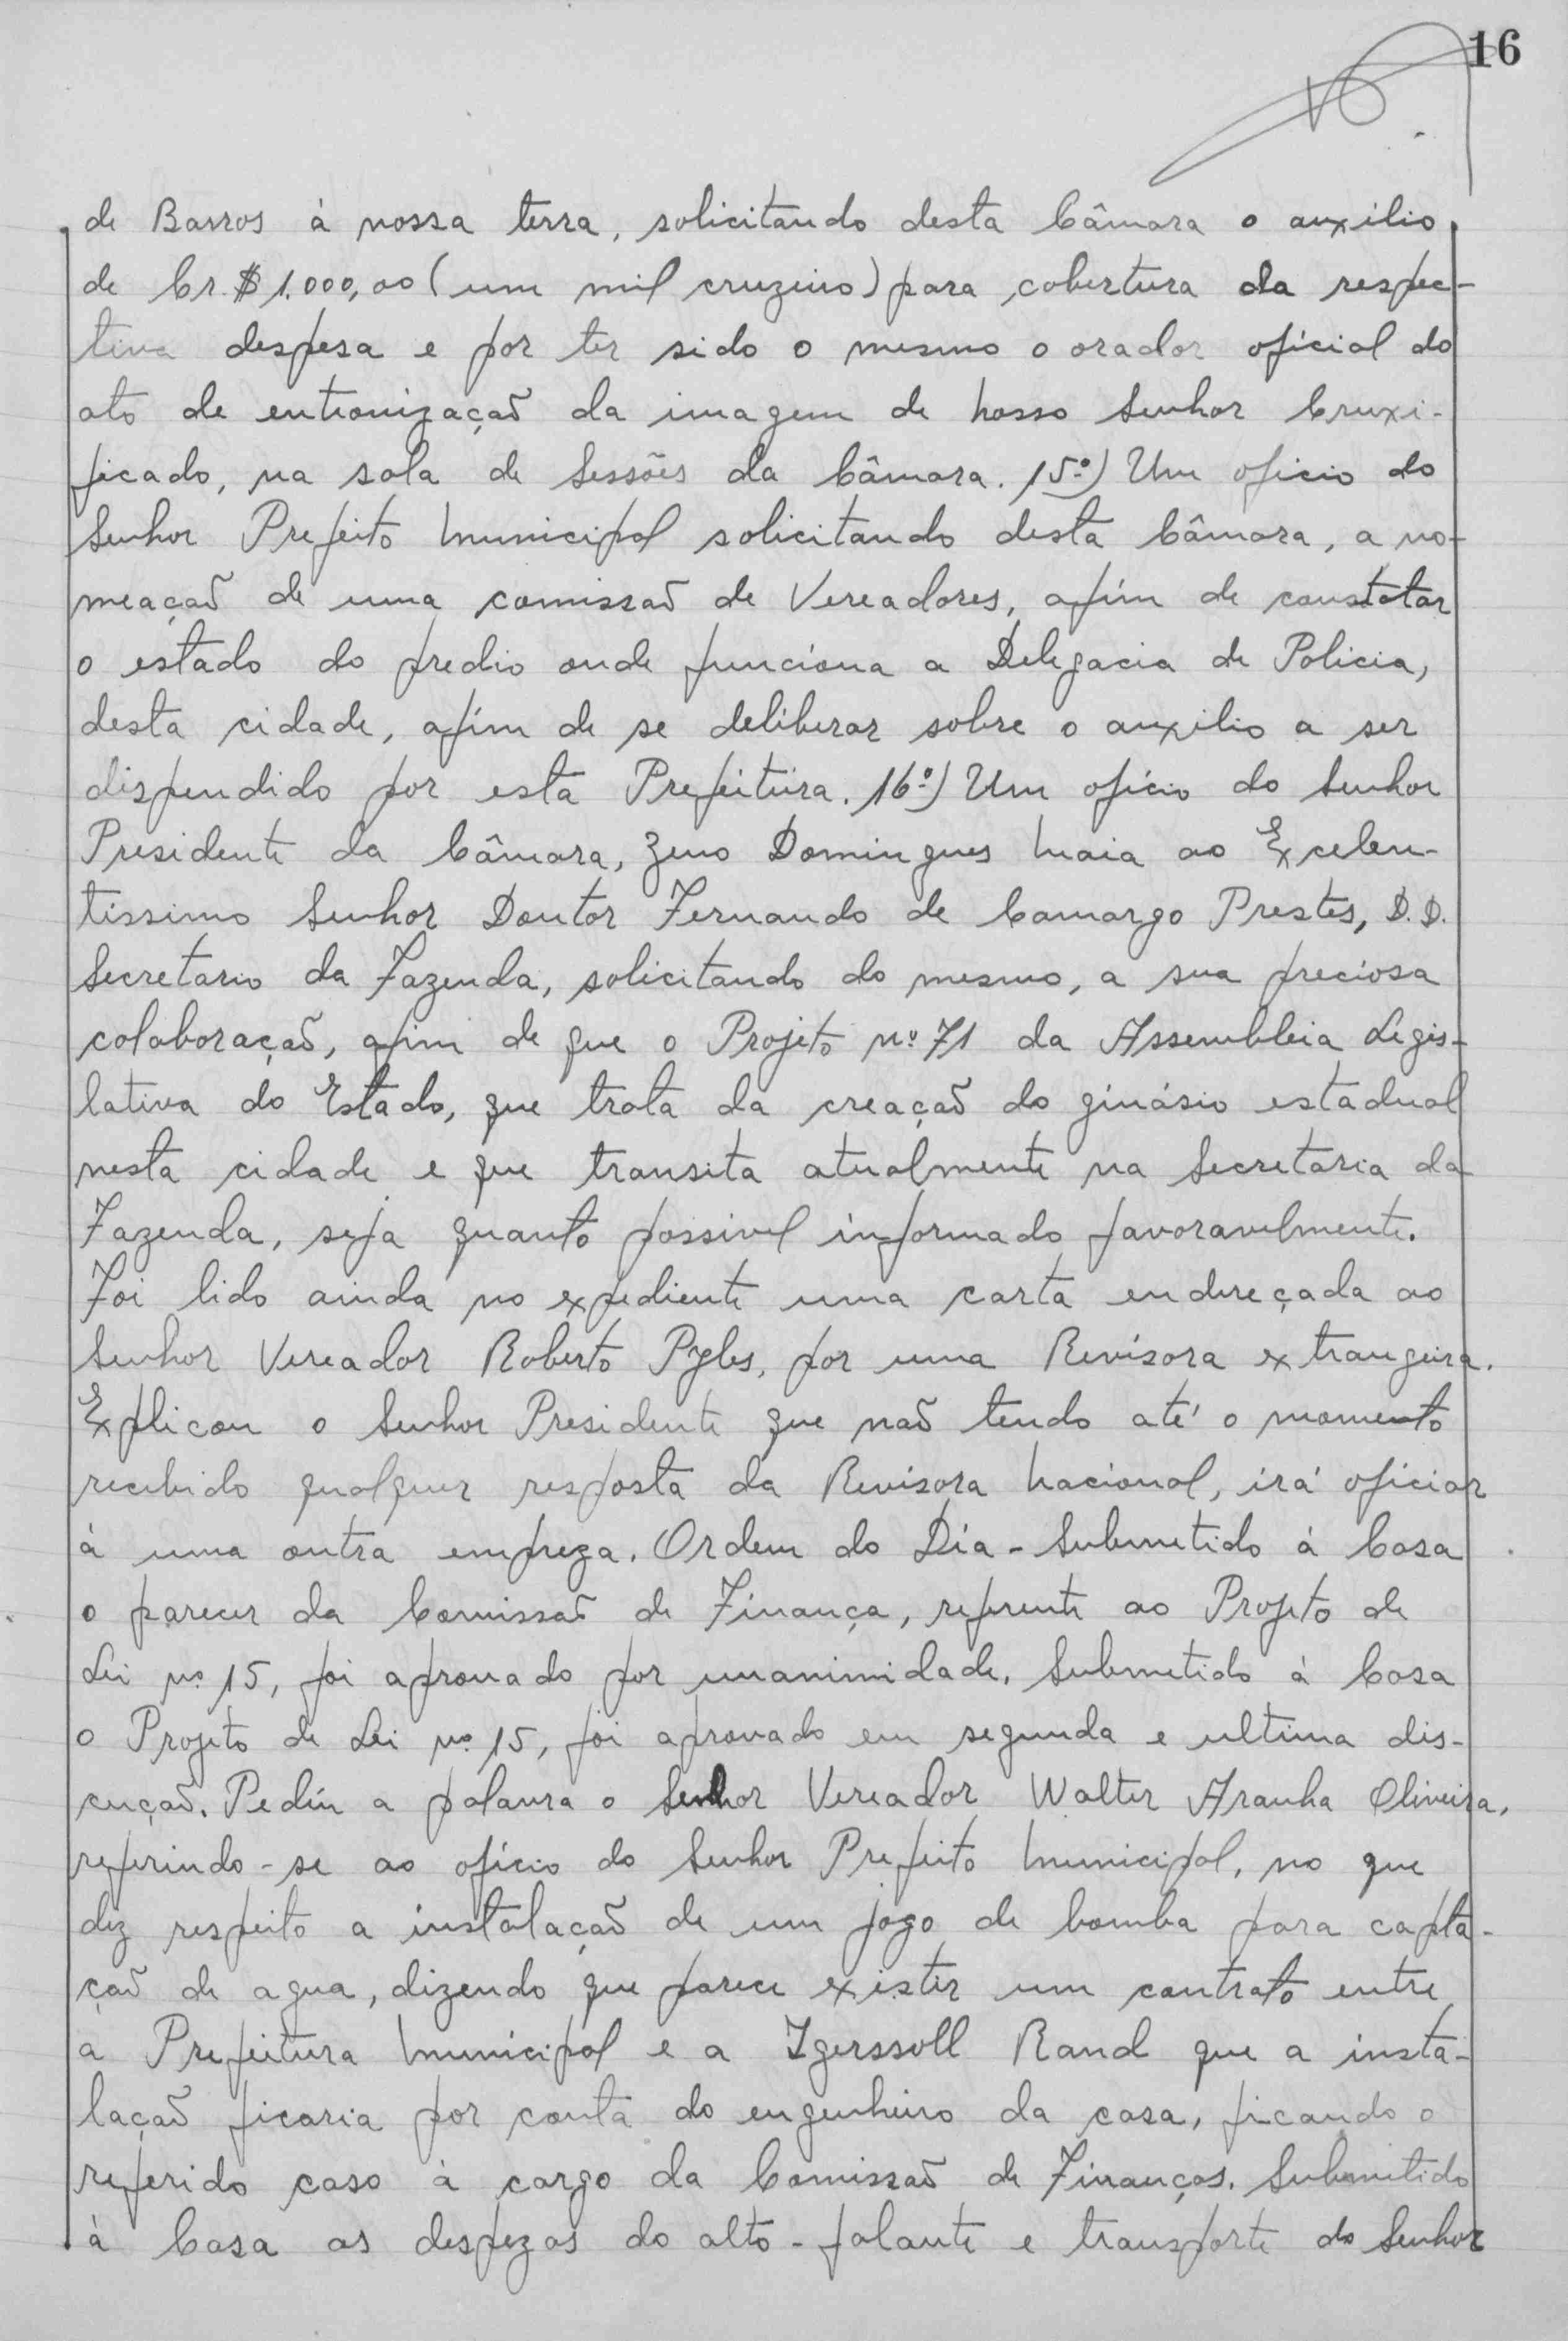 16
de Barros à nossa terra, solicitando desta Câmara o auxilio
de Cr.$ 1.000,00 (um mil cruzeiro) para cobertura da respec-
tiva despesa e por ter sido o mesmo o orador oficial do
ato de entronização da imagem de Nosso Senhor Cruxi-
ficado, na sala de Sessões da Câmara. 15º) Um oficio do
Senhor Prefeito Municipal solicitando desta Câmara, a no-
meação de uma comissão de Vereadores, afim de constatar
o estado do predio onde funciona a Delegacia de Policia,
desta cidade, afim de se deliberar sobre o auxilio a ser
dispendido por esta Prefeitura. 16º) Um oficio do Senhor
Presidente da Câmara, Zeno Domingues Maia ao Excelen-
tissimo Senhor Doutor Fernando de Camargo Prestes, D.D.
Secretario da Fazenda, solicitando do mesmo, a sua preciosa
colaboração, afim de que o Projeto nº 71 da Assembleia Legis-
lativa do Estado, que trata da creação do ginásio estadual
nesta cidade e que transita atualmente na Secretaria da
Fazenda, seja quanto possivel informado favoravelmente.
Foi lido ainda no expediente uma carta endereçada ao
Senhor Vereador Roberto Pyles, por uma Revisora extrangeira.
Explicou o Senhor Presidente que não tendo até o momento
recebido qualquer resposta da Revisora Nacional, irá oficiar
à uma outra empreza. Ordem do Dia - Submetido à Casa
o parecer da Comissão de Finança, referente ao Projeto de
Lei nº 15, foi aprovado por unanimidade. Submetido à Casa
o Projeto de Lei nº 15, foi aprovado em segunda e ultima dis-
cução. Pediu a palavra o Senhor Vereador Walter Aranha Oliveira,
referindo-se ao oficio do Senhor Prefeito Municipal, no que
diz respeito a instalação de um jogo de bomba para capta-
ção de agua, dizendo que parece existir um contrato entre
a Prefeitura Municipal e a Igerssoll Rand que a insta-
lação ficaria por conta do engenheiro da casa, ficando o
referido caso à cargo da Comissão de Finanças. Submetido
à Casa as despezas do alto-falante e transporte do Senhor